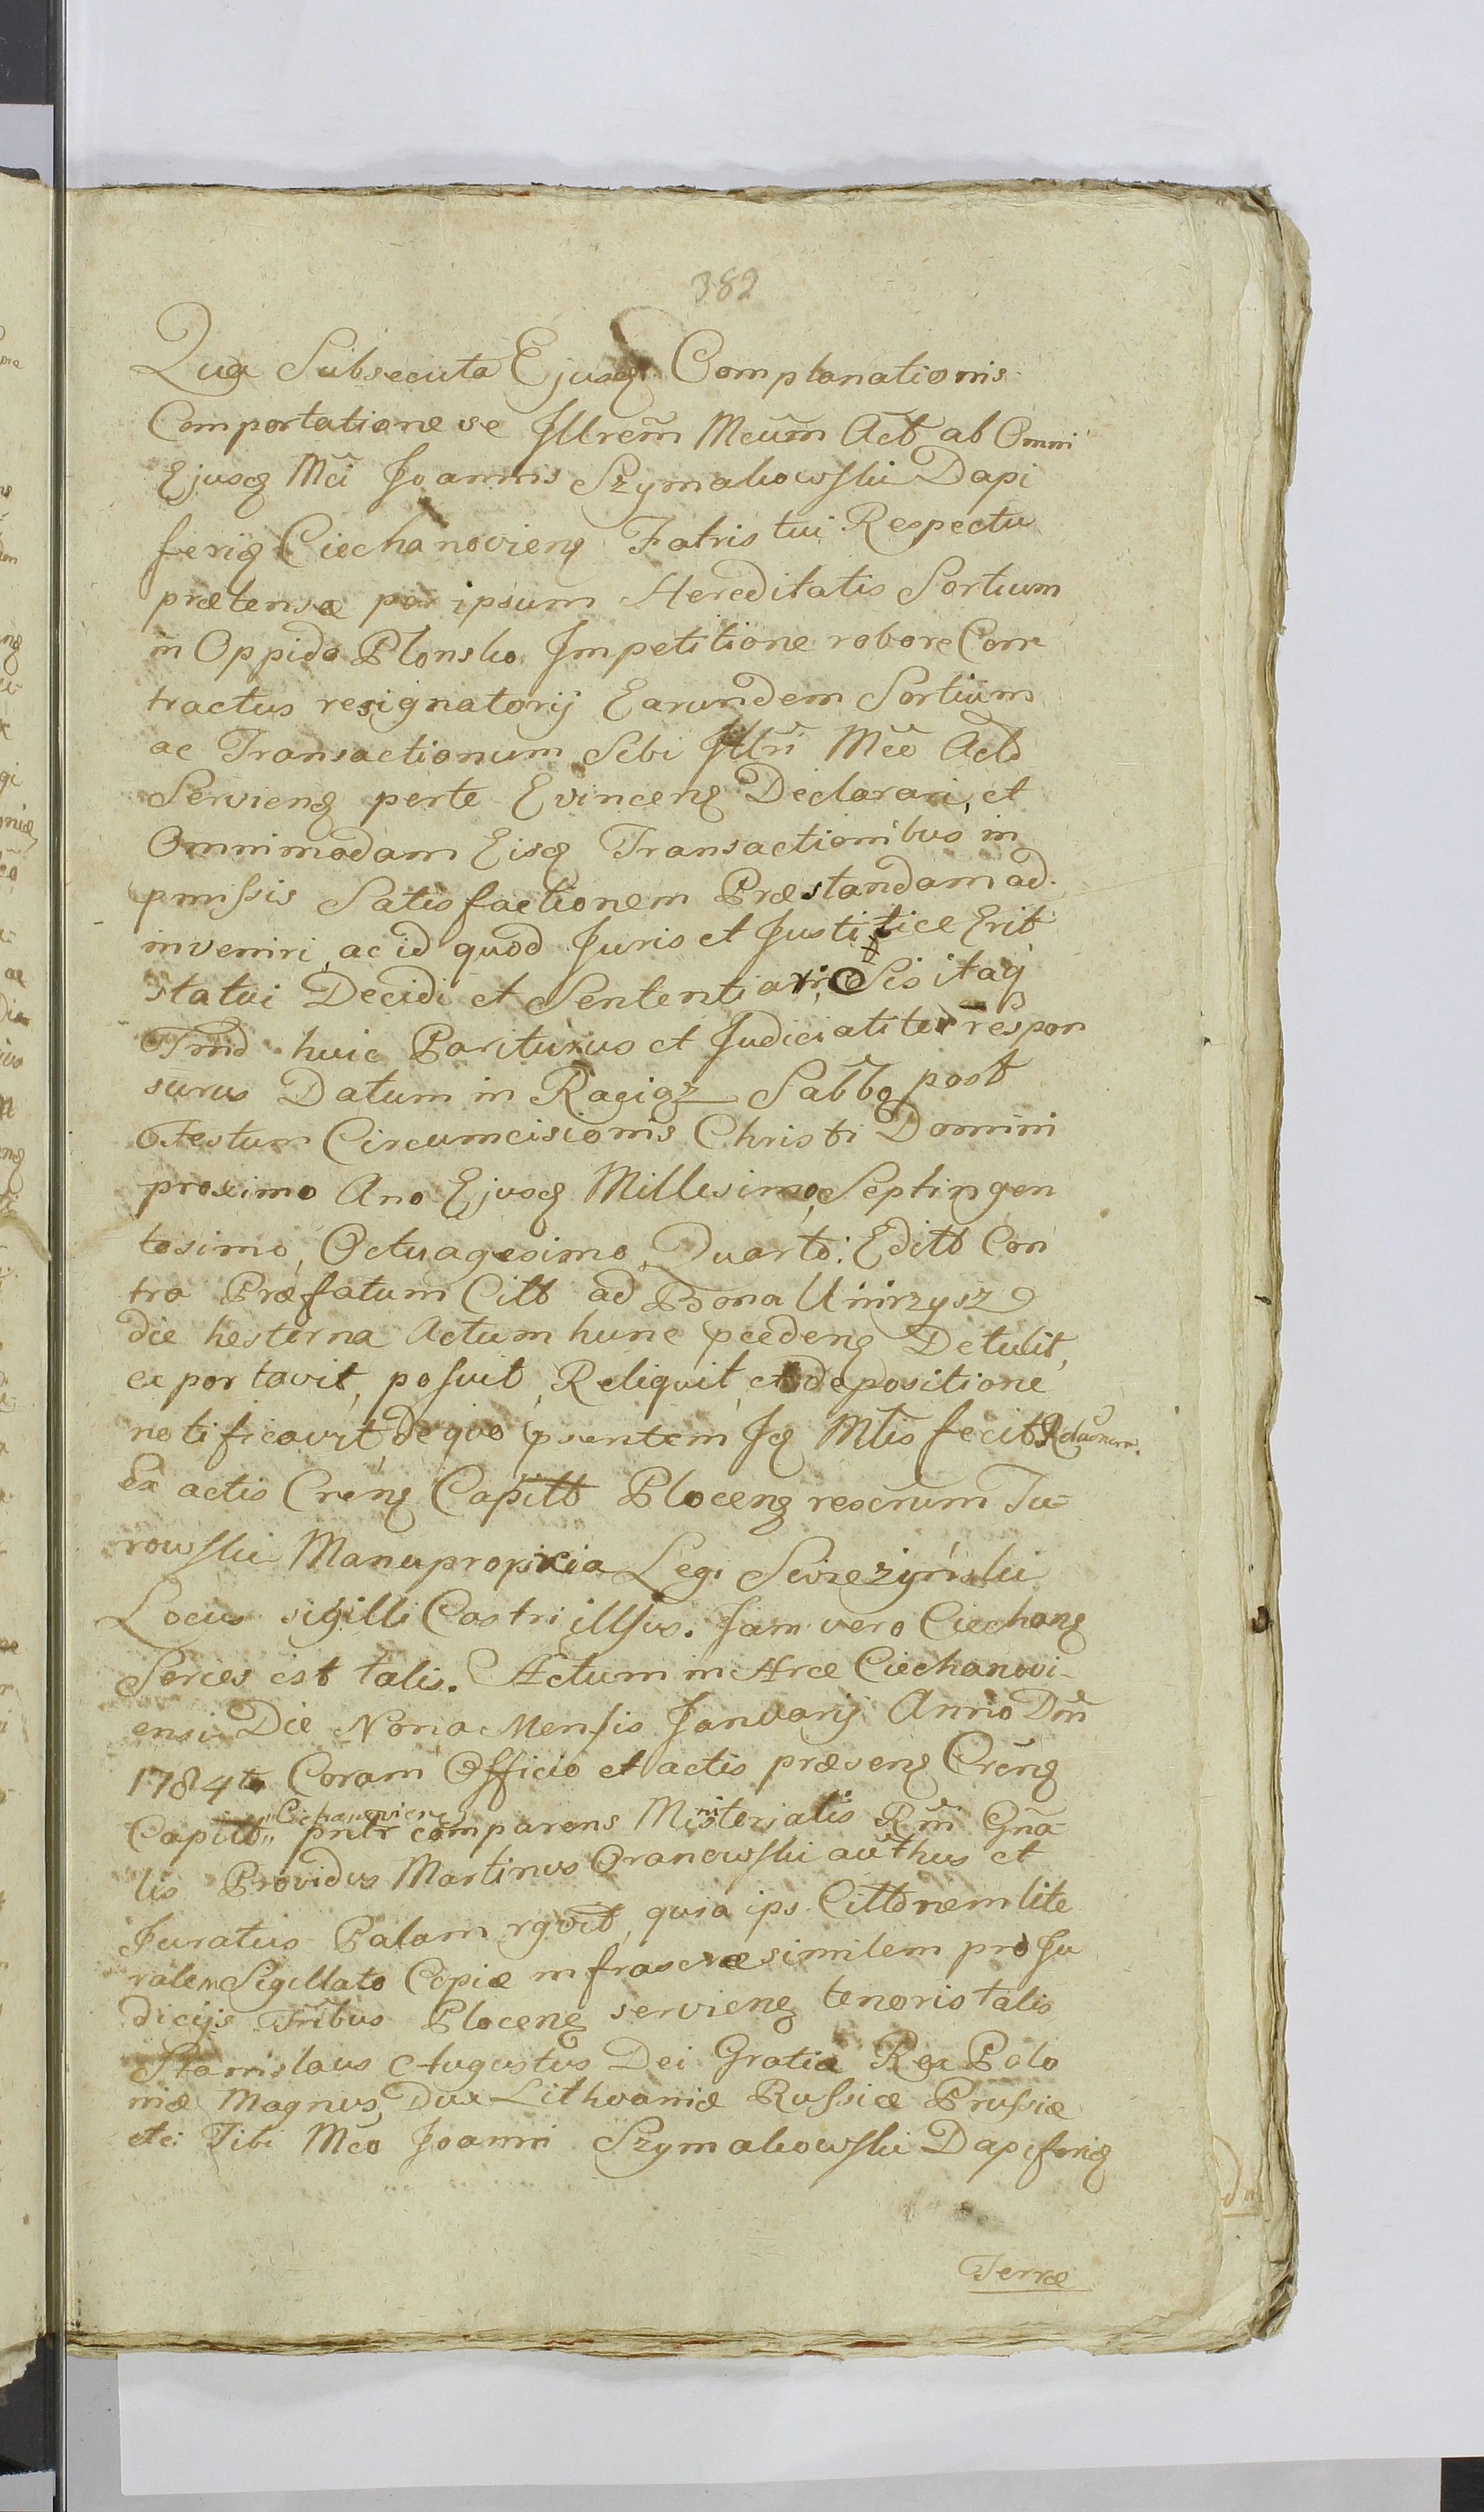 382
Qua Subsecuta Ejusq Complanationis
Comportatione se Jllrem̃ Mcum̃ Act ab Omni
Ejusq Mci Joannis Szymakowski Dapi
feriq Ciechanovienq Fatris tui Respectu
prætensæ per ipsum Hereditatis Sortium
in Oppido Plonsko Jmpetitione robore Con
tractus resignatorij Earundem Sortium
ac Transactionum Sibi Jllri Mco Act
Servienq perte Evincenq Declarari, et
Omnimodam Eisq Transactionibus in
pmissis Satisfactionem Præstandam ad
inveniri, ac id quod Juris et Justitice Erit
statui Decidi et Sententiari, Sis itaq
Tmd huic Pariturus et Judicialiter respon
surus Datum in Raciąz Sabbo post
Festum Circumcisionis Christi Domini
proximo Ano Ejusq Millesimo, Septingen
tesimo, Octuagesimo, Quarto: Editt Con
tra Præfatum Citt ad Bona Unirzysz
die hesterna Actum hunc pcedenq Detulit,
exportavit, posuit, Reliquit, et depositione
notificavit de quo psentem Jq Mtis fecit Relaõnem.
Ex actis Crenq Capitt Plocenq rescrum Tu-
rowski Manupropria Legi Swiezyński
Locus sigilli Castri illsus. Jam vero Ciechanq
Series est talis. Actum in Arce Ciechanovi-
ensi Die Nona Mensis Januarij Anno Dni
1784to Coram Officio et actis præsenq Crenq
Capitt,, Ciechanovienq pntr comparens Ministerialis Rni Gna-
lis Providus Martinus Oranowski authus et
Juratus Palam rgvit, quia ips Cittõnem lite
ralem Sigillato Copiæ infrascræ similem pro Ju
dicijs Tribus Plocenq servienq tenoris talis
Stanislaus Augustus Dei Gratia Rex Polo
niæ Magnus, Dux Lithvaniæ Russiæ Prussiæ
etc: Tibi Mco Joanni Szymakowski Dapiferiq
Terræ